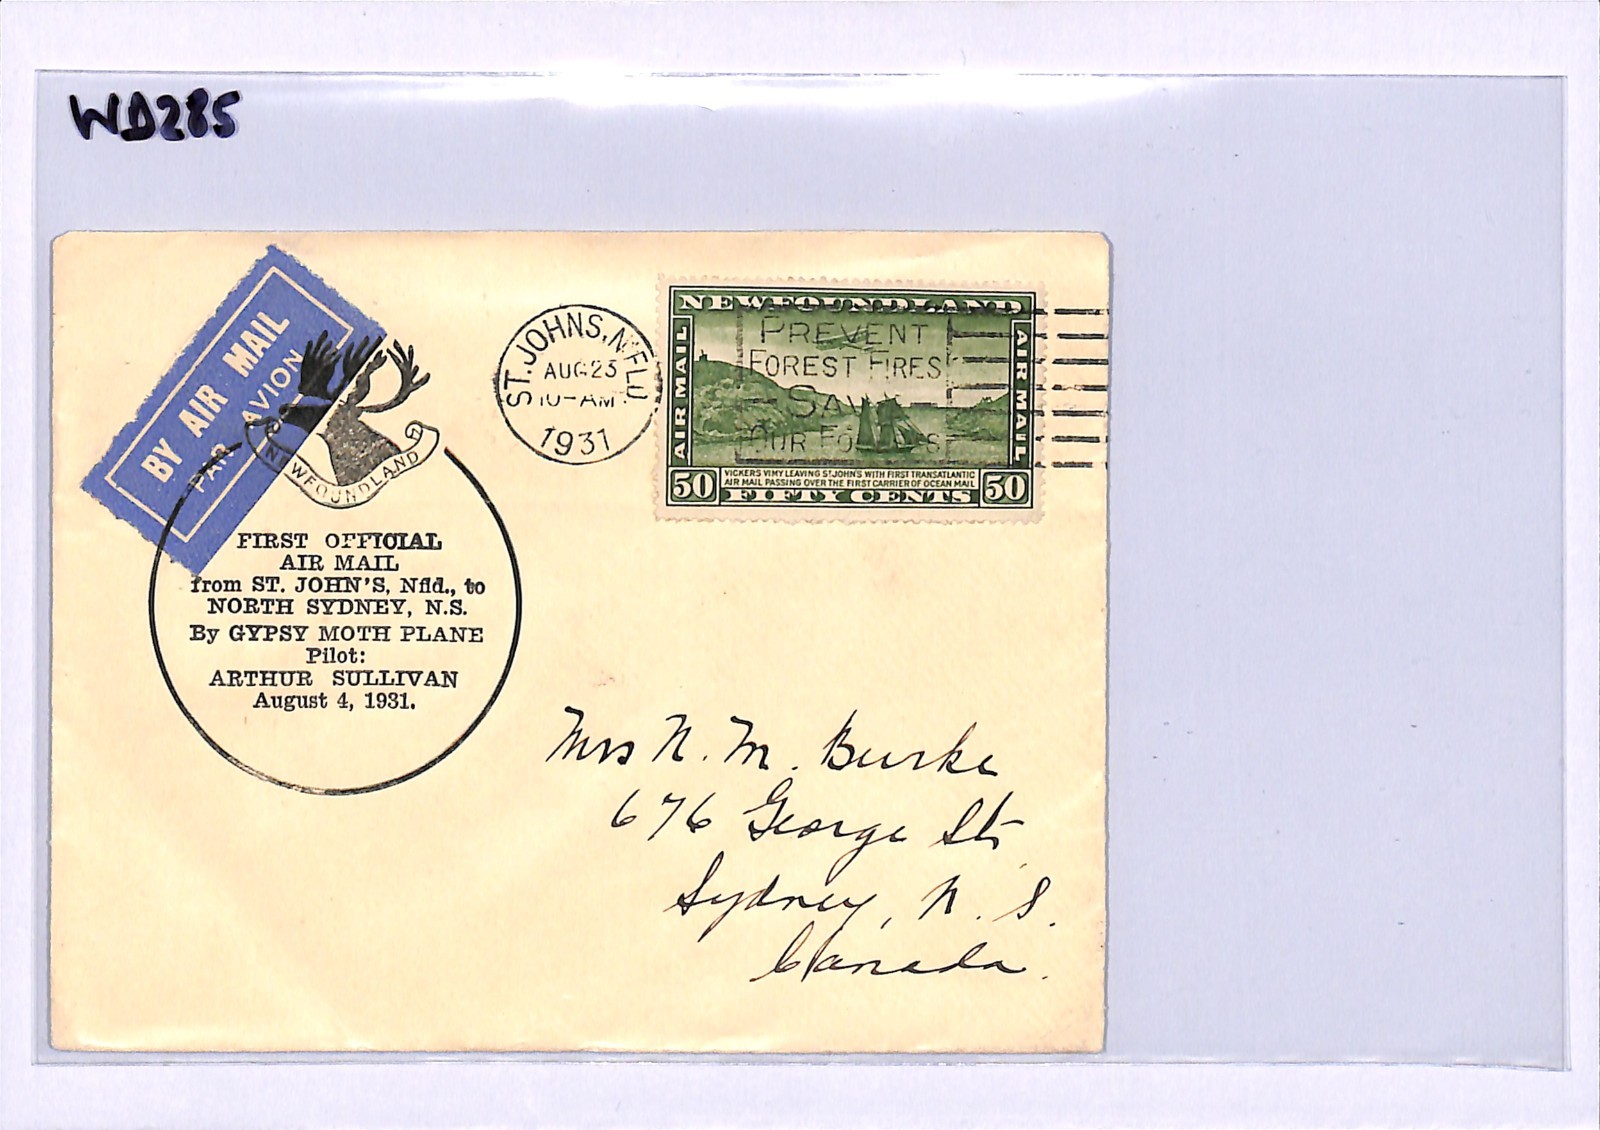 WD285
BY AIR MAIL
PAR AVION
NEWFOUNDLAND
FIRST OFFICIAL
AIR MAIL
from ST. JOHN'S, Nfld., to
NORTH SYDNEY, N.S.
By GYPSY MOTH PLANE
Pilot:
ARTHUR SULLIVAN
August 4, 1931.
ST. JOHNS, N'FLD
AUG 23
10-AM
1931
PREVENT
FOREST FIRES
SAVE
OUR FORESTS
NEWFOUNDLAND
AIR MAIL
AIR MAIL
VICKERS VIMY LEAVING ST JOHN'S WITH FIRST TRANSATLANTIC
AIR MAIL PASSING OVER THE FIRST CARRIER OF OCEAN MAIL
50 FIFTY CENTS 50
Mrs N. M. Burke
676 George St
Sydney, N. S.
Canada.